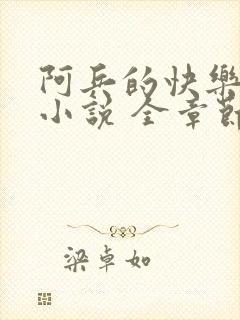 阿兵的快樂
小說 全章節
梁卓如